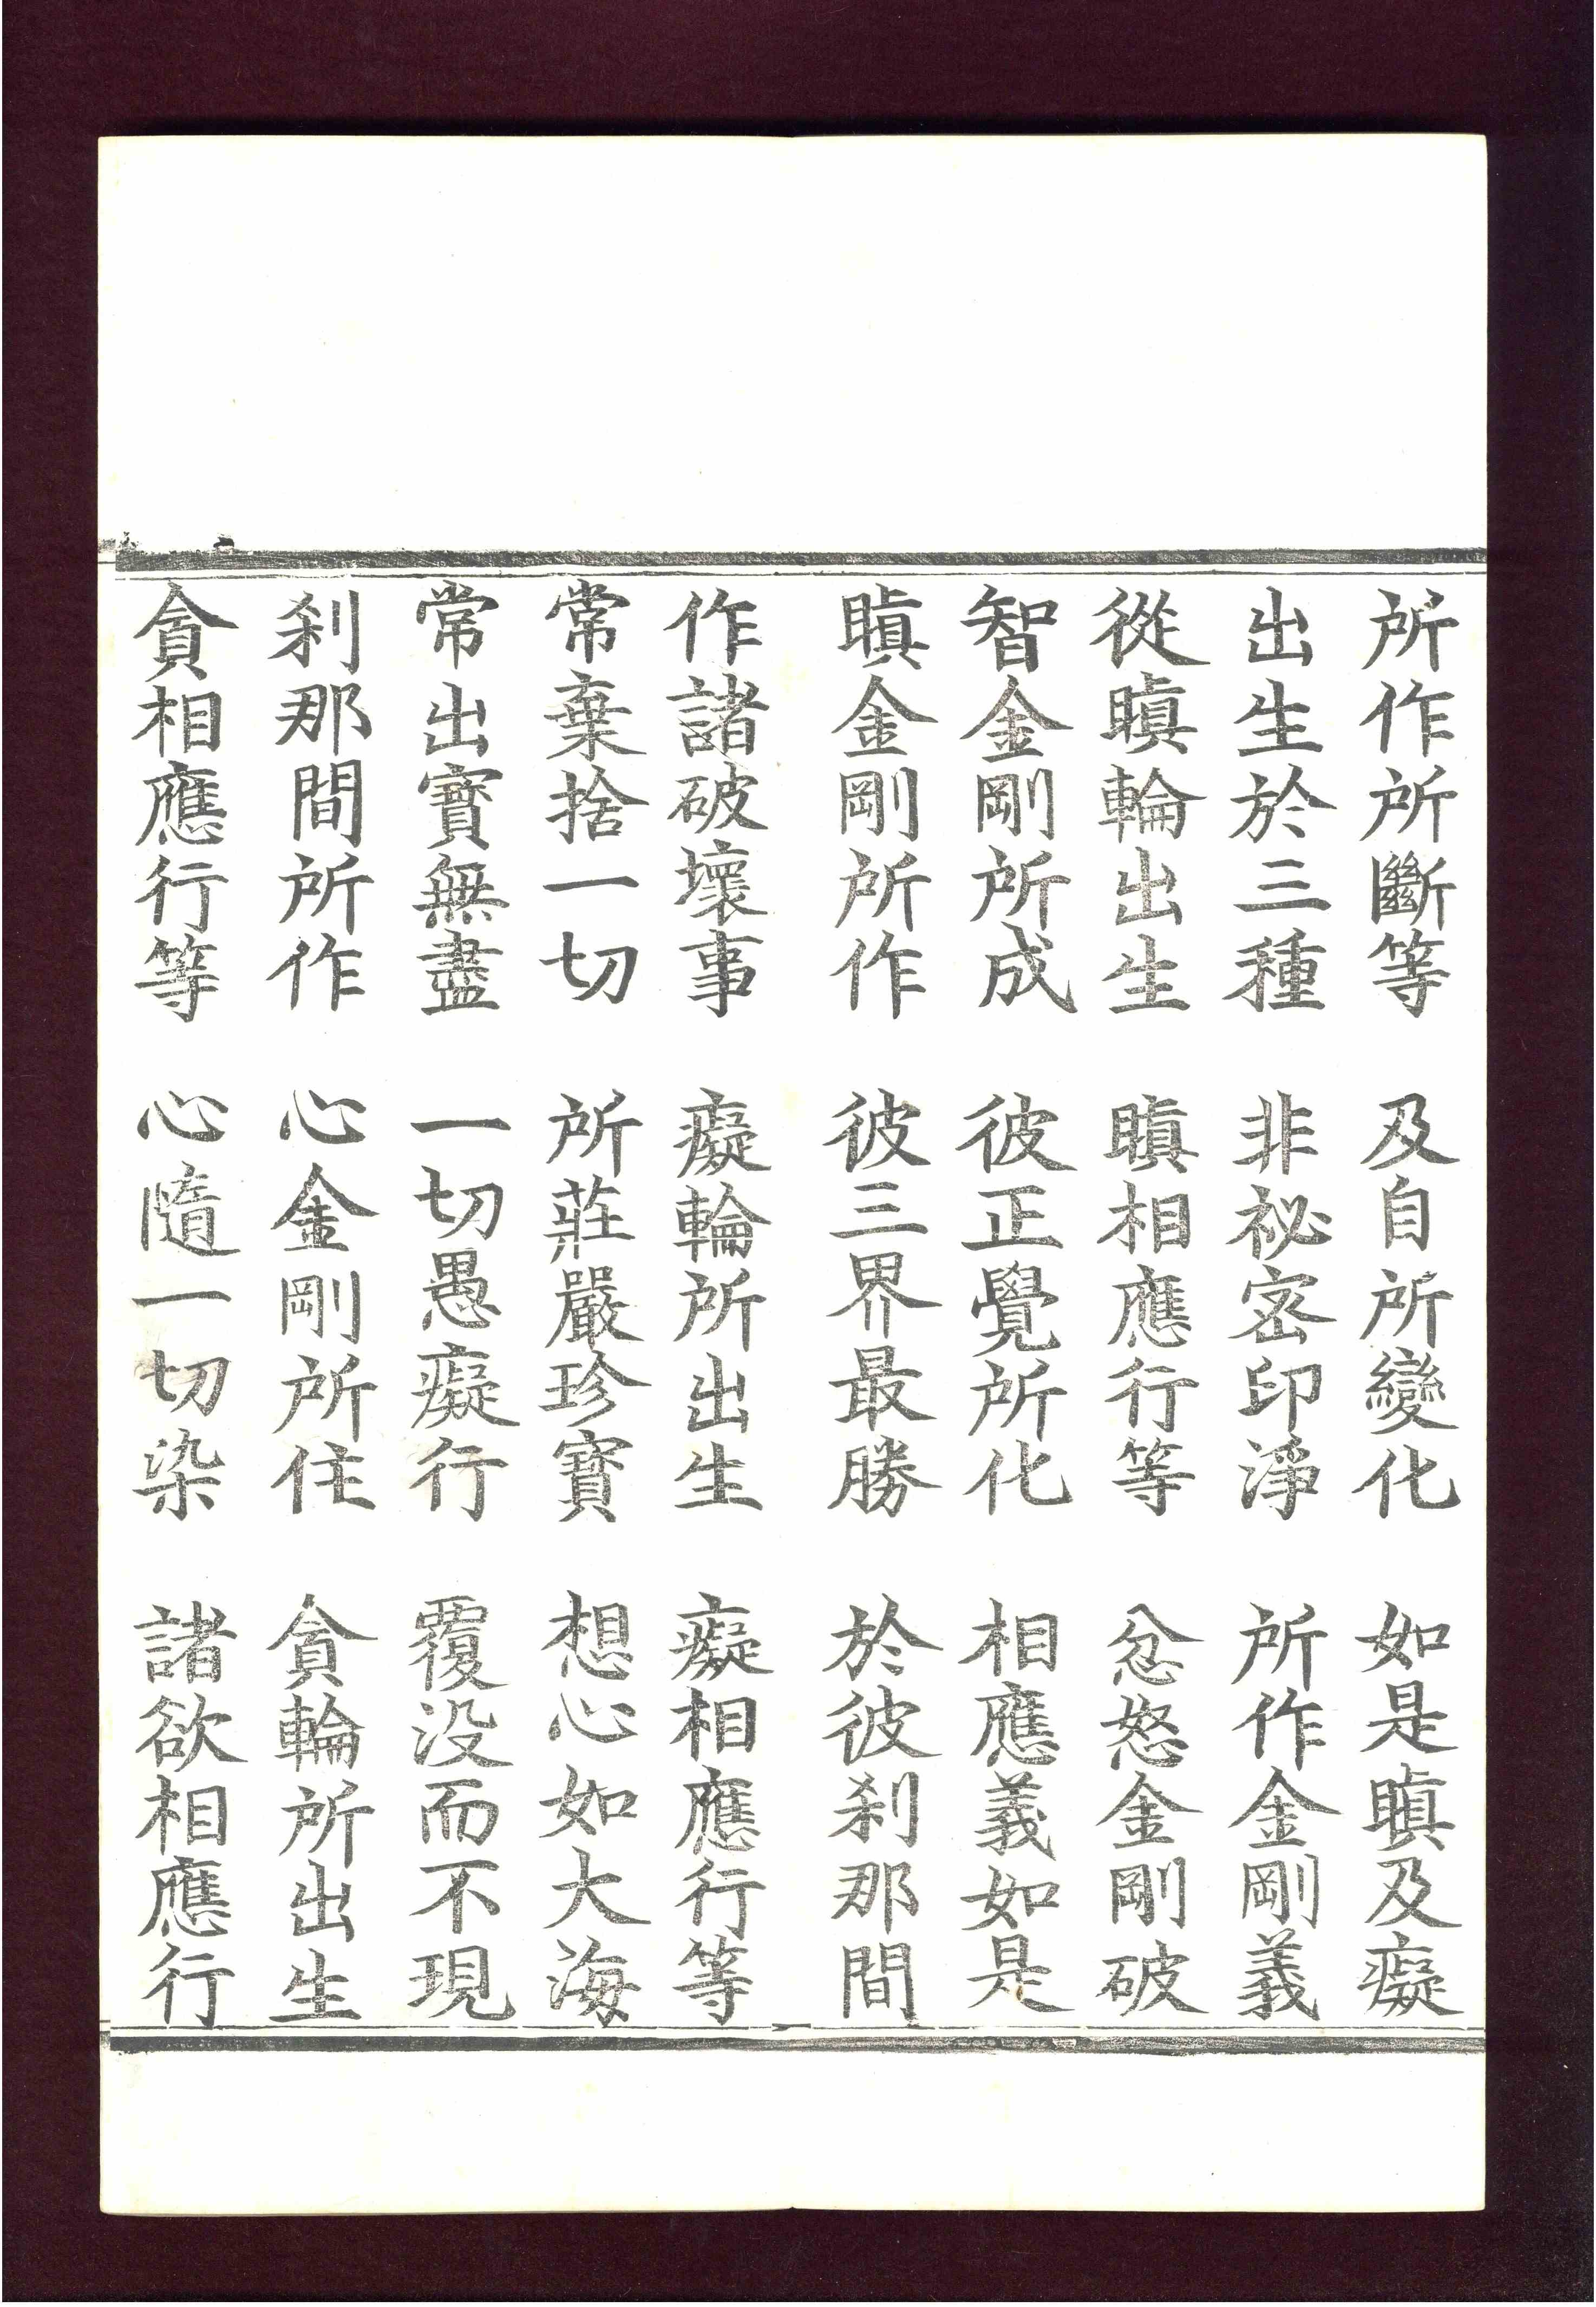 所作所斷等　及自所變化　如是瞋及癡
出生於三種　非祕密印淨　所作金剛義
從瞋輪出生　瞋相應行等　忿怒金剛破
智金剛所成　彼正覺所化　相應義如是
瞋金剛所作　彼三界最勝　於彼刹那間
作諸破壞事　癡輪所出生　癡相應行等
常棄捨一切　所莊嚴珍寶　想心如大海
常出寶無盡　一切愚癡行　覆没而不現
刹那間所作　心金剛所住　貪輪所出生
貪相應行等　心隨一切染　諸欲相應行